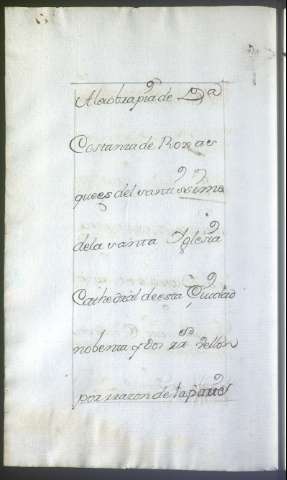 A la obra pia de Dª
Costanza de Roxas
que es del santissimo
de la santa Yglesia
Cathedral de esta Ciudad
nobenta y dos rs. vellon
por razon de la parte